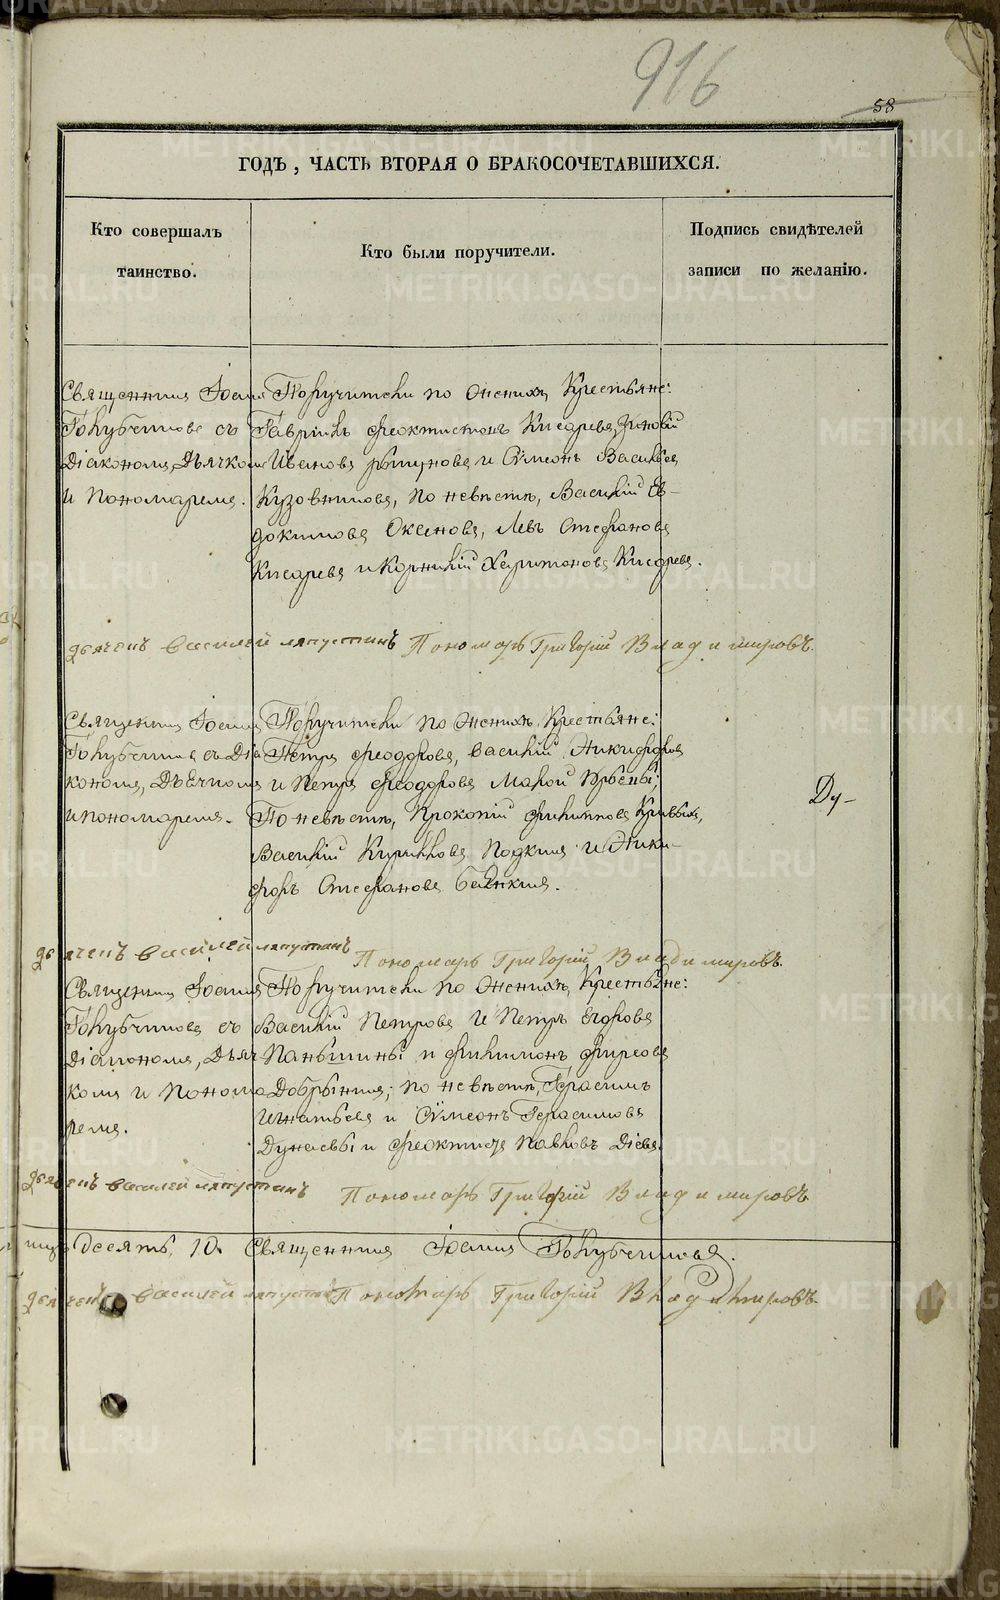 916
58
ГОДЪ, ЧАСТЬ ВТОРАЯ О БРАКОСОЧЕТАВШИХСЯ.
Кто совершалъ
таинство.
Кто были поручители.
Подпись свидѣтелей
записи по желанію.
Священникъ Іоаннъ
Голубчиковъ съ
Діакономъ, Дьячкомъ
и Пономаремъ.
Поручители по женихѣ Крестьяне:
Гавріилъ Феоктистовъ Кисаревъ, Зиновій
Ивановъ и Сѵмеонъ Васильевъ
Кузовниковъ, по невѣстѣ, Василій Ев-
докимовъ Оксеновъ, Левъ Стефановъ
Кисаревъ и Корнилій Харитоновъ Кисаревъ.
дьячекъ Василей Ляпустинъ Пономарь Григорій Владимировъ.
Священникъ Іоаннъ
Голубчиковъ съ Діа
кономъ, Дьячкомъ
и пономаремъ.
Поручители по женихѣ Крестьяне:
Петръ Феодоровъ, Василій Никифоровъ
и Петръ Феодоровъ
По невѣстѣ, Прокопій Филипповъ Кривыхъ,
Василій Кирилловъ и Ники-
форъ Стефановъ
Ду-
дьячекъ Василей Ляпустинъ
Пономарь Григорій Владимировъ.
Священникъ Іоаннъ
Голубчиковъ съ
Діакономъ, Дьяч
комъ и Понома
ремъ.
Поручители по женихѣ, Крестьяне:
Василій Петровъ и Петръ Егоровъ
Паньшины и Филимонъ Фирсовъ
Добрынинъ; по невѣстѣ, Герасимъ
Игнатьевъ и Сѵмеонъ Герасимовъ
Дунаевы и Феоктистъ Павловъ Діевъ.
дьячекъ Василей Ляпустинъ
Пономарь Григорій Владимировъ
десять, 10. Священникъ Іоаннъ Голубчиковъ.
дьячекъ Василей Ляпустинъ Пономарь Григорій Владимировъ.
METRIKI.GASO-URAL.RU